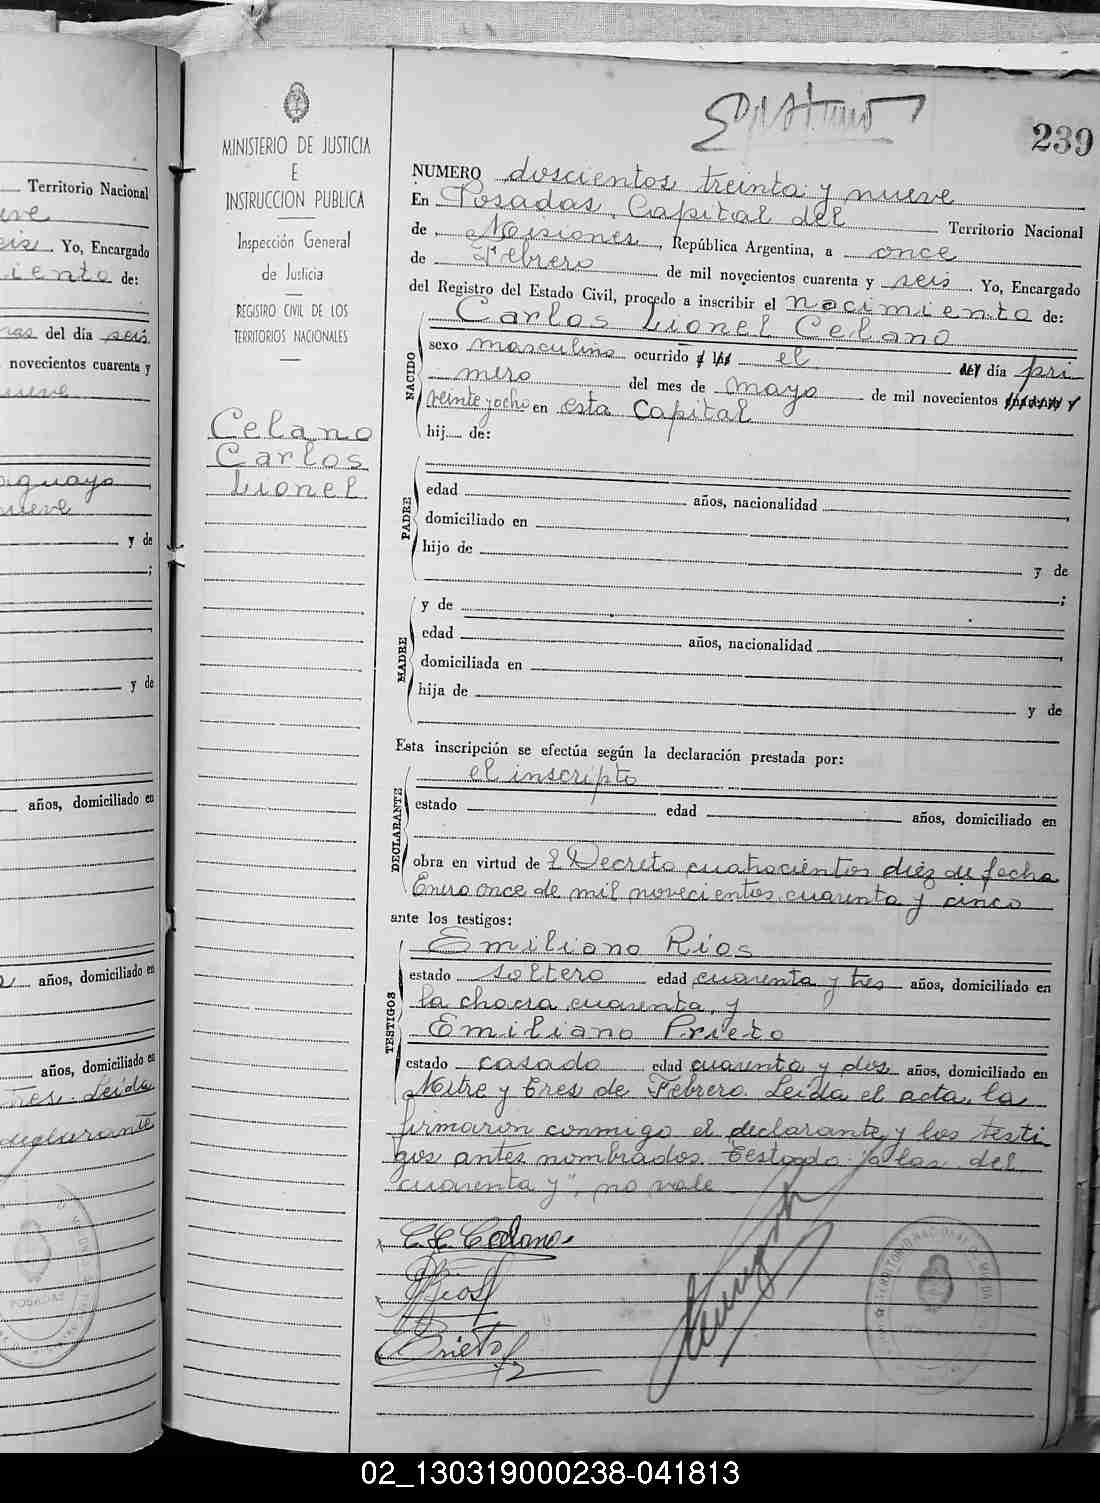 Territorio Nacional
eis. Yo, Encargado
iento de:
del día seis
novecientos cuarenta y
aguayo
y de
y de
años, domiciliado en
años, domiciliado en
años, domiciliado en
Leida
declarante
POSADAS
MINISTERIO DE JUSTICIA
E
INSTRUCCION PUBLICA
Inspección General
de Justicia
REGISTRO CIVIL DE LOS
TERRITORIOS NACIONALES
Celano
Carlos
Lionel
239
NUMERO doscientos treinta y nueve
En Posadas, Capital del Territorio Nacional
de Misiones, República Argentina, a once
de Febrero de mil novecientos cuarenta y seis. Yo, Encargado
del Registro del Estado Civil, procedo a inscribir el nacimiento de:
Carlos Lionel Celano
NACIDO
sexo masculino ocurrido a las el del día pri
mero del mes de mayo de mil novecientos cuarenta y
veinte y ocho en esta Capital
hij de:
PADRE
edad años, nacionalidad
domiciliado en
hijo de y de
;
MADRE
y de
edad años, nacionalidad
domiciliada en
hija de y de
Esta inscripción se efectúa según la declaración prestada por:
DECLARANTE
el inscripto
estado edad años, domiciliado en
obra en virtud de l Decreto cuatrocientos diez de fecha
Enero once de mil novecientos cuarenta y cinco
ante los testigos:
TESTIGOS
Emiliano Rios
estado soltero edad cuarenta y tres años, domiciliado en
la chacra cuarenta, y
Emiliano Prieto
estado casado edad cuarenta y dos años, domiciliado en
Mitre y tres de Febrero. Leida el acta, la
firmaron conmigo el declarante y los testi
gos antes nombrados. Testado "a las del
cuarenta y", no vale
C. L. Celano
Rios
Prieto
TERRITORIO NACIONAL DE MISIONES
02_130319000238-041813